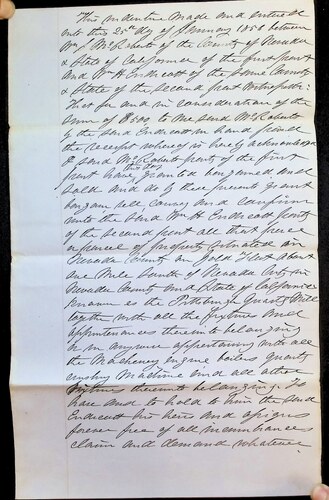 This Indenture Made and entered
into this 25th day of January 1858 between
Wm S McRoberts of the County of Nevada
& State of California of the first part
and Wm H Endicott of the same County
& State of the second part Witnesseth:
That for and in consideration of the
sum of $500 to me said McRoberts
by the said Endicott in hand paid
the receipt whereof is hereby acknowledged
I said McRoberts party of the first
part have this day granted bargained and
sold and do by these presents grant
bargain sell convey and confirm
unto the said Wm H Endicott party
of the second part all that piece
or parcel of property situated in
Nevada County on Gold Flat about
one Mile South of Nevada City in
Nevada County and State of California
known as the Pittsburg Quartz Mill
together with all the fixtures and
appurtenances thereunto belonging
or in anywise appertaining with all
the Machinery engine boilers quartz
crushing Machine and all other
fixtures thereunto belonging. To
have and to hold to him the said
Endicott his heirs and assigns
forever free of all incumbrances
claim and demand whatever